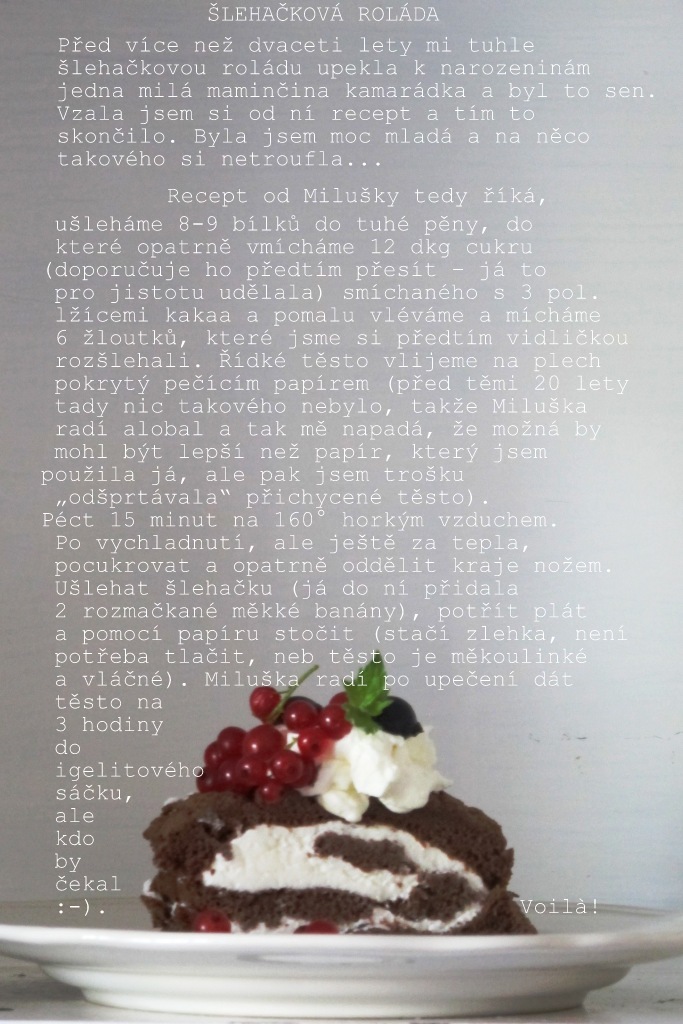 ŠLEHAČKOVÁ ROLÁDA
Před více než dvaceti lety mi tuhle
šlehačkovou roládu upekla k narozeninám
jedna milá maminčina kamarádka a byl to sen.
Vzala jsem si od ní recept a tím to
skončilo. Byla jsem moc mladá a na něco
takového si netroufla...
Recept od Milušky tedy říká,
ušleháme 8-9 bílků do tuhé pěny, do
které opatrně vmícháme 12 dkg cukru
(doporučuje ho předtím přesít - já to
pro jistotu udělala) smíchaného s 3 pol.
lžícemi kakaa a pomalu vléváme a mícháme
6 žloutků, které jsme si předtím vidličkou
rozšlehali. Řídké těsto vlijeme na plech
pokrytý pečícím papírem (před těmi 20 lety
tady nic takového nebylo, takže Miluška
radí alobal a tak mě napadá, že možná by
mohl být lepší než papír, který jsem
použila já, ale pak jsem trošku
„odšprtávala“ přichycené těsto).
Péct 15 minut na 160° horkým vzduchem.
Po vychladnutí, ale ještě za tepla,
pocukrovat a opatrně oddělit kraje nožem.
Ušlehat šlehačku (já do ní přidala
2 rozmačkané měkké banány), potřít plát
a pomocí papíru stočit (stačí zlehka, není
potřeba tlačit, neb těsto je měkoulinké
a vláčné). Miluška radí po upečení dát
těsto na
3 hodiny
do
igelitového
sáčku,
ale
kdo
by
čekal
:-).
Voilà!